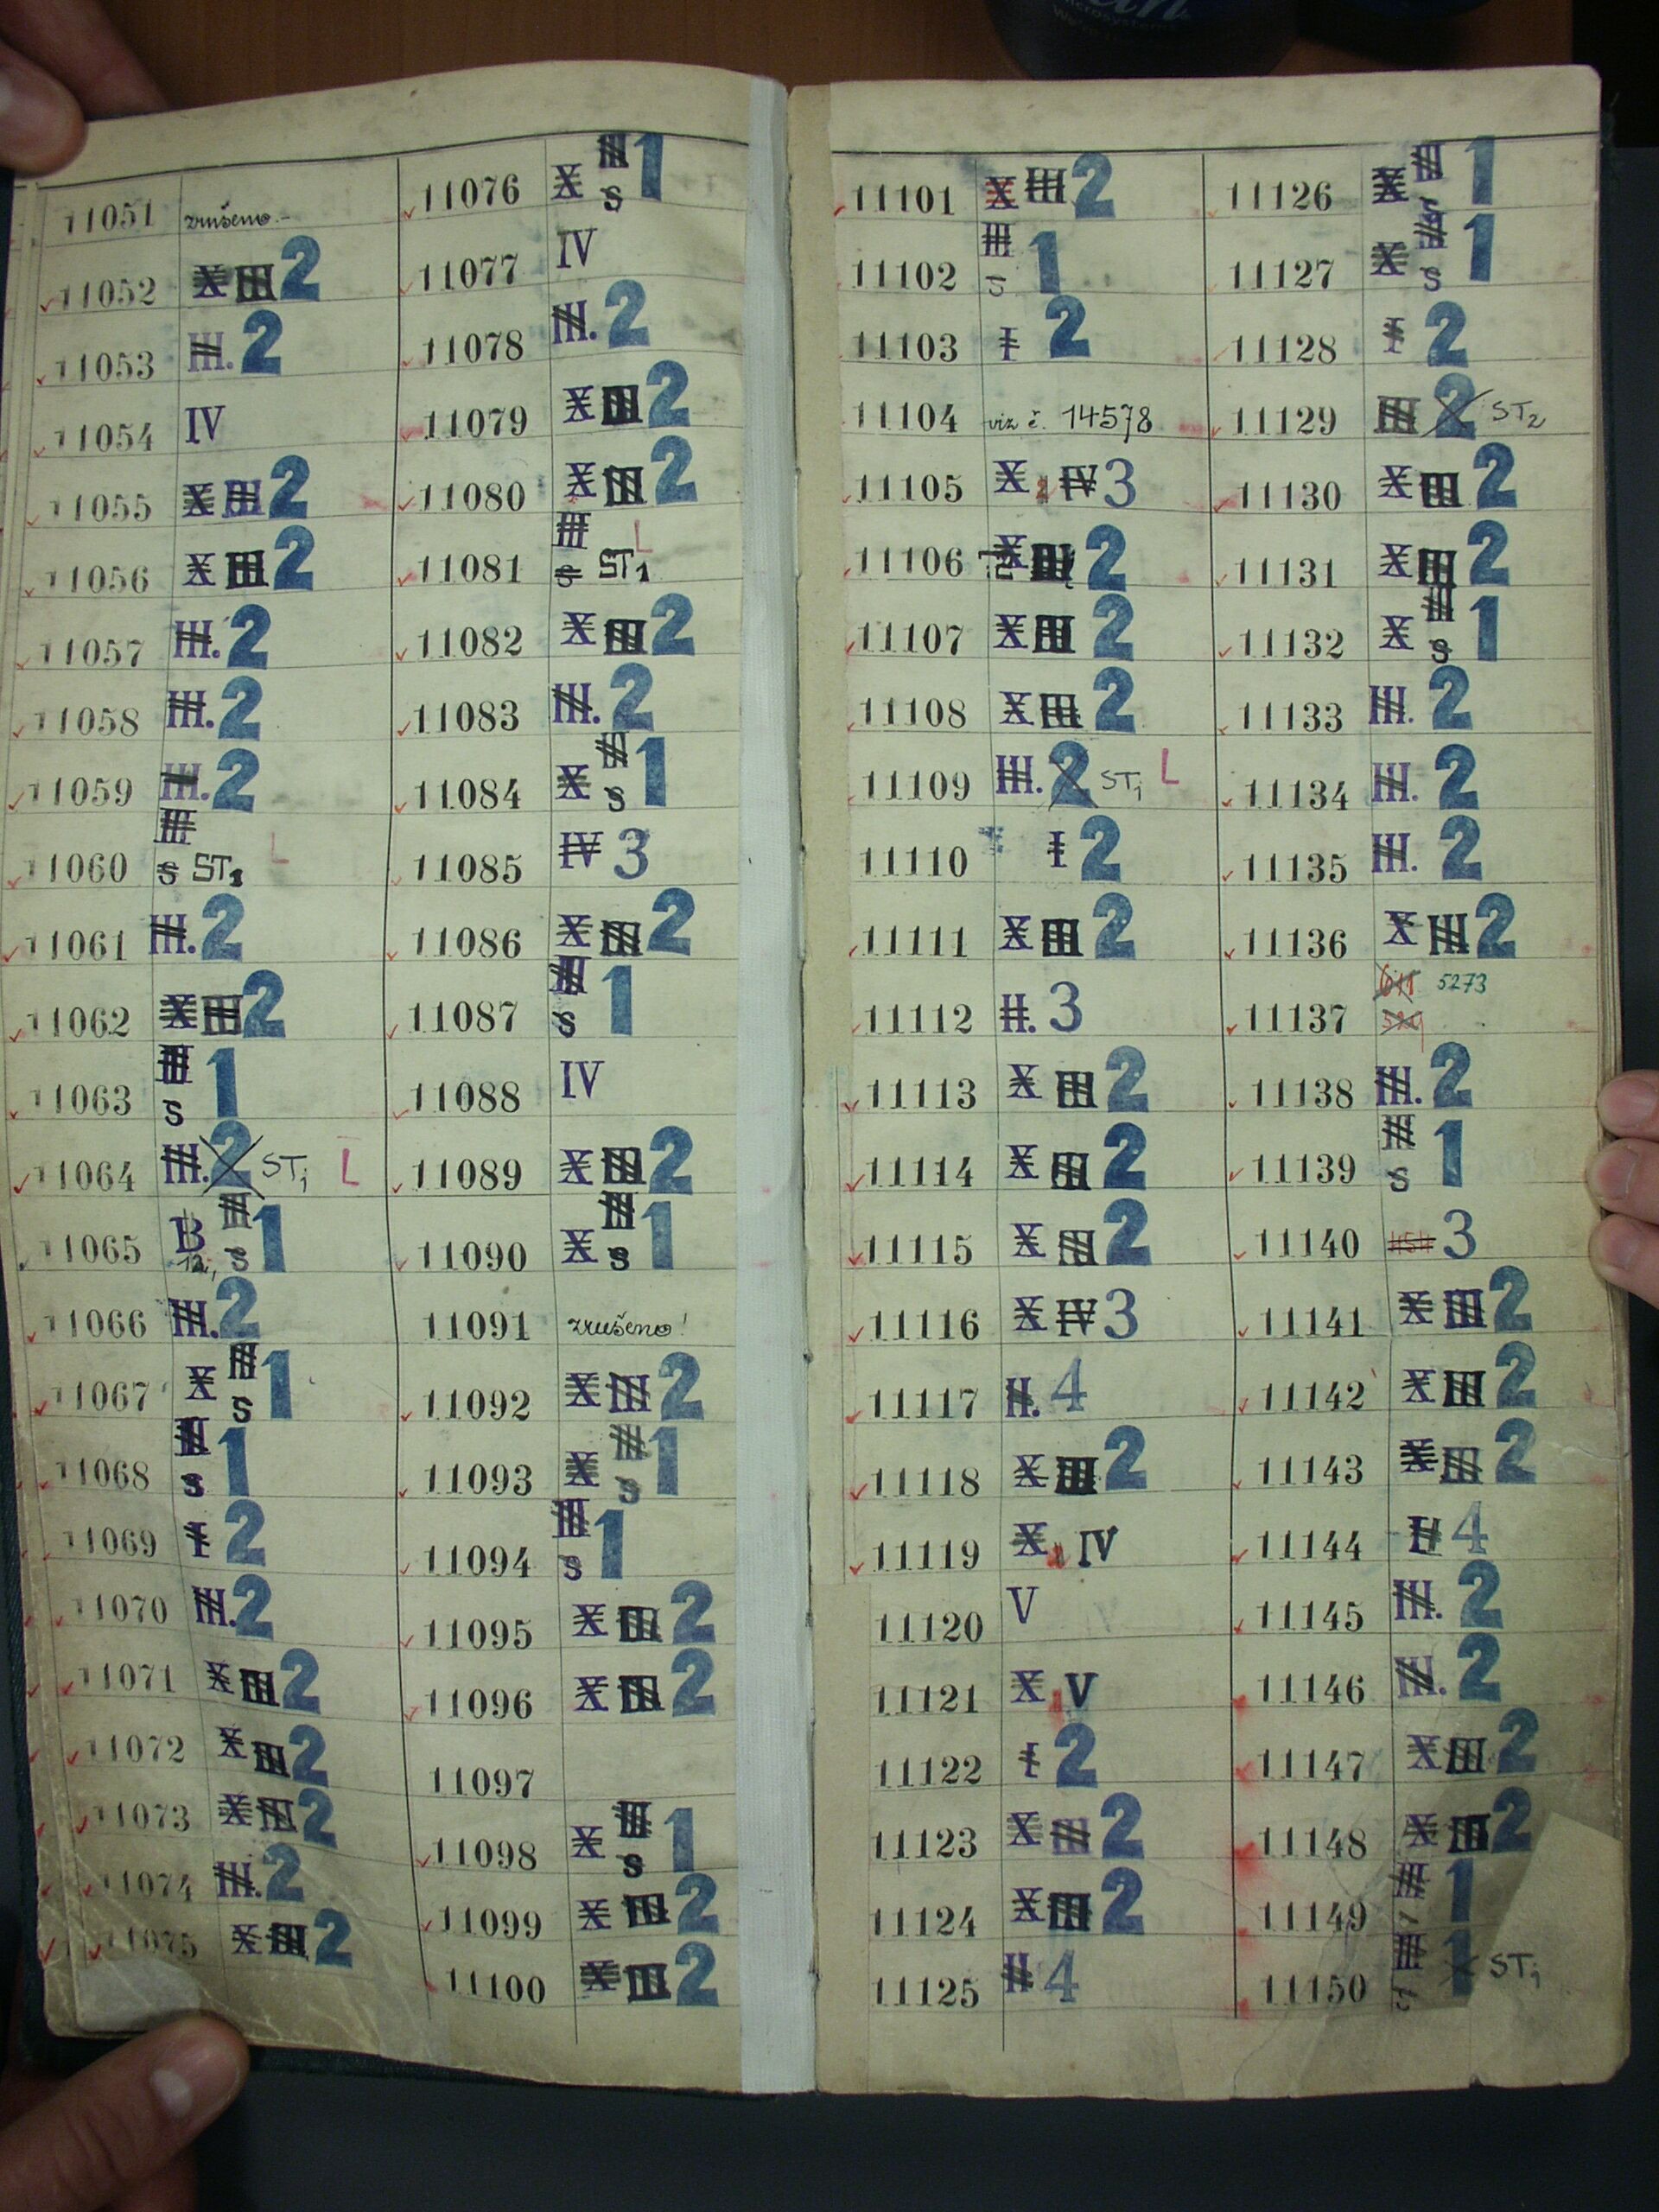 11051 zrušeno.-
11052 X III 2
11053 III. 2
11054 IV
11055 X III 2
11056 X III 2
11057 III. 2
11058 III. 2
11059 III. 2
11060 III S ST1 L
11061 III. 2
11062 X III 2
11063 III S 1
11064 III. 2 ST1 L
11065 B 12, III S 1
11066 III. 2
11067 X III S 1
11068 III S 1
11069 I 2
11070 III. 2
11071 X III 2
11072 X III 2
11073 X III 2
11074 III. 2
11075 X III 2
11076 X III S 1
11077 IV
11078 III. 2
11079 X III 2
11080 X III 2
11081 III S ST1 L
11082 X III 2
11083 III. 2
11084 X III S 1
11085 IV 3
11086 X III 2
11087 III S 1
11088 IV
11089 X III 2
11090 X III S 1
11091 zrušeno!
11092 X III 2
11093 X III S 1
11094 III S 1
11095 X III 2
11096 X III 2
11097
11098 X III S 1
11099 X III 2
11100 X III 2
11101 X III 2
11102 III S 1
11103 I 2
11104 viz č. 14578
11105 X IV 3
11106 X III 2
11107 X III 2
11108 X III 2
11109 III. 2 ST1 L
11110 I 2
11111 X III 2
11112 II. 3
11113 X III 2
11114 X III 2
11115 X III 2
11116 X IV 3
11117 II. 4
11118 X III 2
11119 X IV
11120 V
11121 X V
11122 I 2
11123 X III 2
11124 X III 2
11125 II 4
11126 X III S 1
11127 X III S 1
11128 I 2
11129 III 2 ST2
11130 X III 2
11131 X III 2
11132 X III S 1
11133 III. 2
11134 III. 2
11135 III. 2
11136 X III 2
11137 5273
11138 III. 2
11139 III S 1
11140 3
11141 X III 2
11142 X III 2
11143 X III 2
11144 II 4
11145 III. 2
11146 III. 2
11147 X III 2
11148 X III 2
11149 III 1
11150 III 1 ST1